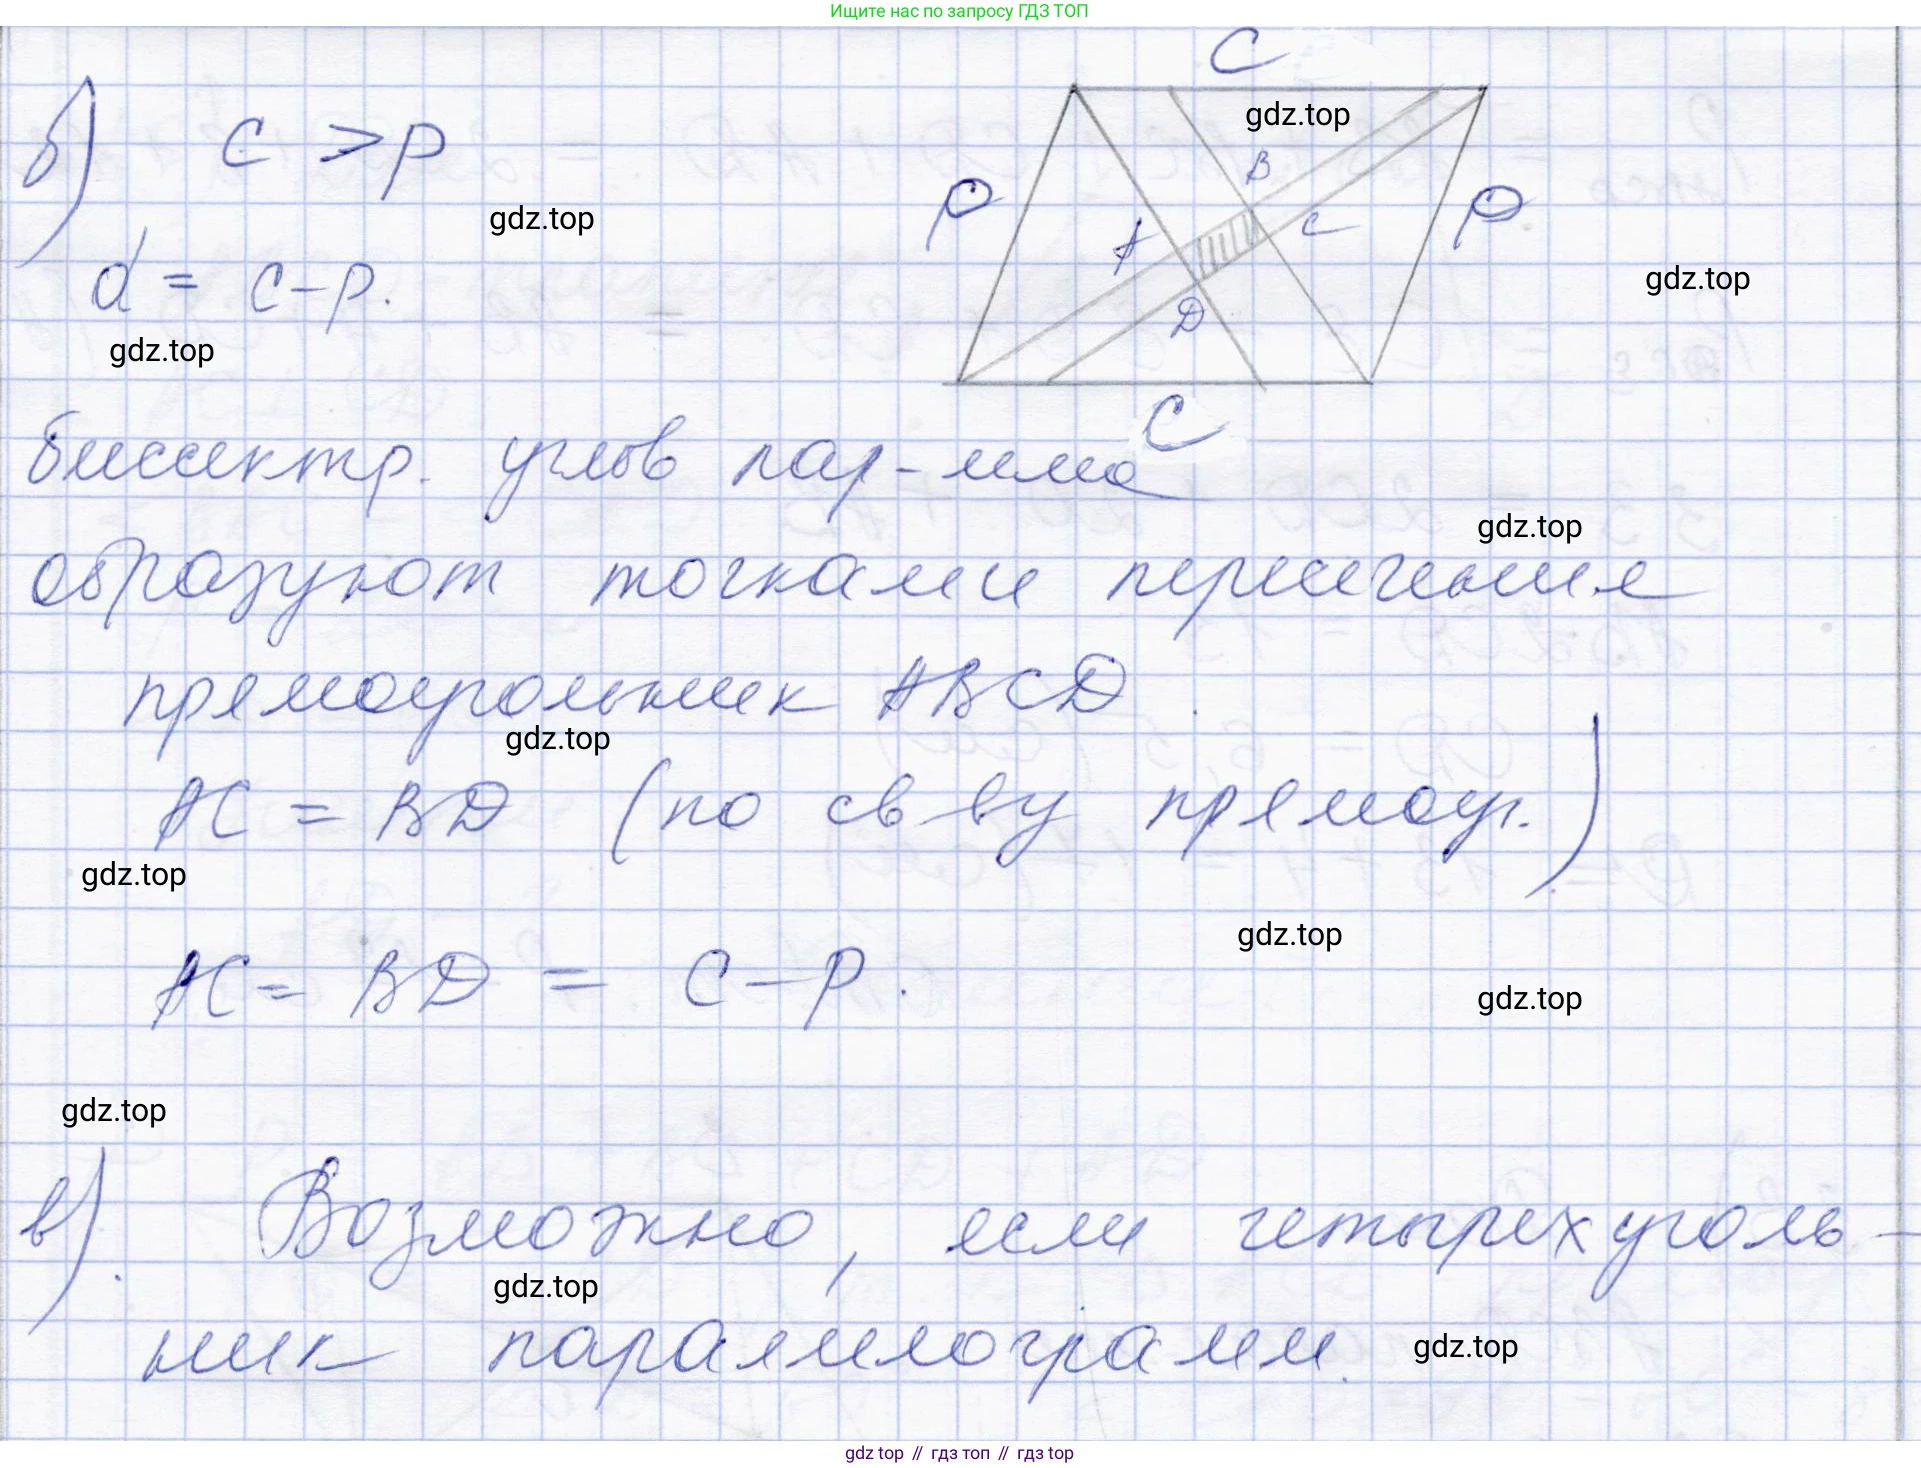 Ищите нас по запросу ГДЗ ТОП
C
gdz.top
б) c > p
B
P
P
gdz.top
A
C
gdz.top
d = c - p.
D
gdz.top
C
биссектр. углов пар-мма
gdz.top
образуют точками пересечения
прямоугольник ABCD
gdz.top
AC = BD (по св-ву прямоуг.)
gdz.top
gdz.top
AC = BD = c - p.
gdz.top
gdz.top
в). Возможно, если четырехуголь-
gdz.top
ник параллелограмм.
gdz.top
gdz top // гдз топ // гдз top